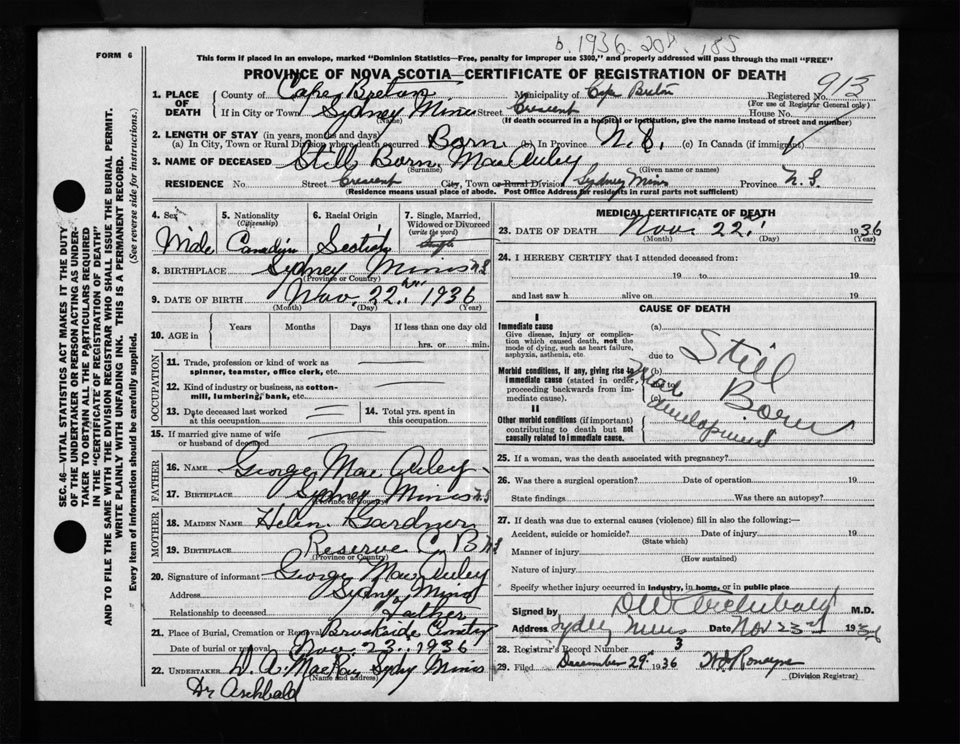 b. 1936. 208. 185
FORM 6
This form if placed in an envelope, marked "Dominion Statistics—Free, penalty for improper use $300," and properly addressed will pass through the mail "FREE"
PROVINCE OF NOVA SCOTIA—CERTIFICATE OF REGISTRATION OF DEATH
913
SEC. 46—VITAL STATISTICS ACT MAKES IT THE DUTY
OF THE UNDERTAKER OR PERSON ACTING AS UNDER-
TAKER TO OBTAIN ALL THE PARTICULARS REQUIRED
IN THE "CERTIFICATE OF REGISTRATION OF DEATH"
AND TO FILE THE SAME WITH THE DIVISION REGISTRAR WHO SHALL ISSUE THE BURIAL PERMIT.
WRITE PLAINLY WITH UNFADING INK. THIS IS A PERMANENT RECORD.
Every item of information should be carefully supplied. (See reverse side for instructions.)
1. PLACE OF DEATH
County of Cape Breton Municipality of Cape Breton Registered No.
(For use of Registrar General only)
If in City or Town Sydney Mines Street Crescent House No.
(Name) (If death occurred in a hospital or institution, give the name instead of street and number)
2. LENGTH OF STAY (in years, months and days)
(a) In City, Town or Rural Division where death occurred Born (b) In Province N.S. (c) In Canada (if immigrant)
3. NAME OF DECEASED Still Born MacAuley
(Surname) (Given name or names)
RESIDENCE No. Street Crescent City, Town or Rural Division Sydney Mines Province N.S
(Residence means usual place of abode. Post Office Address for residents in rural parts not sufficient)
4. Sex 5. Nationality 6. Racial Origin 7. Single, Married,
(Citizenship) Widowed or Divorced
(write the word)
Male Canadian Scotish Single
8. BIRTHPLACE Sydney Mines N.S
(Province or Country)
9. DATE OF BIRTH Nov. 22 1936
(Month) (Day) (Year)
10. AGE in Years Months Days If less than one day old
hrs. or min.
OCCUPATION
11. Trade, profession or kind of work as
spinner, teamster, office clerk, etc.
12. Kind of industry or business, as cotton-
mill, lumbering, bank, etc.
13. Date deceased last worked
at this occupation
14. Total yrs. spent in
this occupation
15. If married give name of wife
or husband of deceased
FATHER
16. NAME George MacAuley
17. BIRTHPLACE Sydney Mines N.S
(Province or Country)
MOTHER
18. MAIDEN NAME Helen Gardner
19. BIRTHPLACE Reserve C. B. N.S
(Province or Country)
20. Signature of informant George MacAuley
Address Sydney Mines
Relationship to deceased Father
21. Place of Burial, Cremation or Removal Brookside Cemetry
Date of burial or removal Nov. 23. 1936
22. UNDERTAKER Sydney Mines
(Name and address)
Dr Archbald
MEDICAL CERTIFICATE OF DEATH
23. DATE OF DEATH Nov. 22 1936
(Month) (Day) (Year)
24. I HEREBY CERTIFY that I attended deceased from:
19 to 19
and last saw h alive on 19
CAUSE OF DEATH
I
Immediate cause
Give disease, injury or complica-
tion which caused death, not the
mode of dying, such as heart failure,
asphyxia, asthenia, etc.
(a)
due to
Morbid conditions, if any, giving rise to
immediate cause (stated in order
proceeding backwards from im-
mediate cause).
(b)
due to
(c)
Still Born
development
II
Other morbid conditions (if important)
contributing to death but not
causally related to immediate cause.
25. If a woman, was the death associated with pregnancy?
26. Was there a surgical operation? Date of operation 19
State findings Was there an autopsy?
27. If death was due to external causes (violence) fill in also the following:—
Accident, suicide or homicide? Date of injury 19
(State which)
Manner of injury
(How sustained)
Nature of injury
Specify whether injury occurred in industry, in home, or in public place
Signed by DW Archibald M.D.
Address Sydney Mines Date Nov 23rd 1936
28. Registrar's Record Number 3
29. Filed December 29th 1936
(Division Registrar)